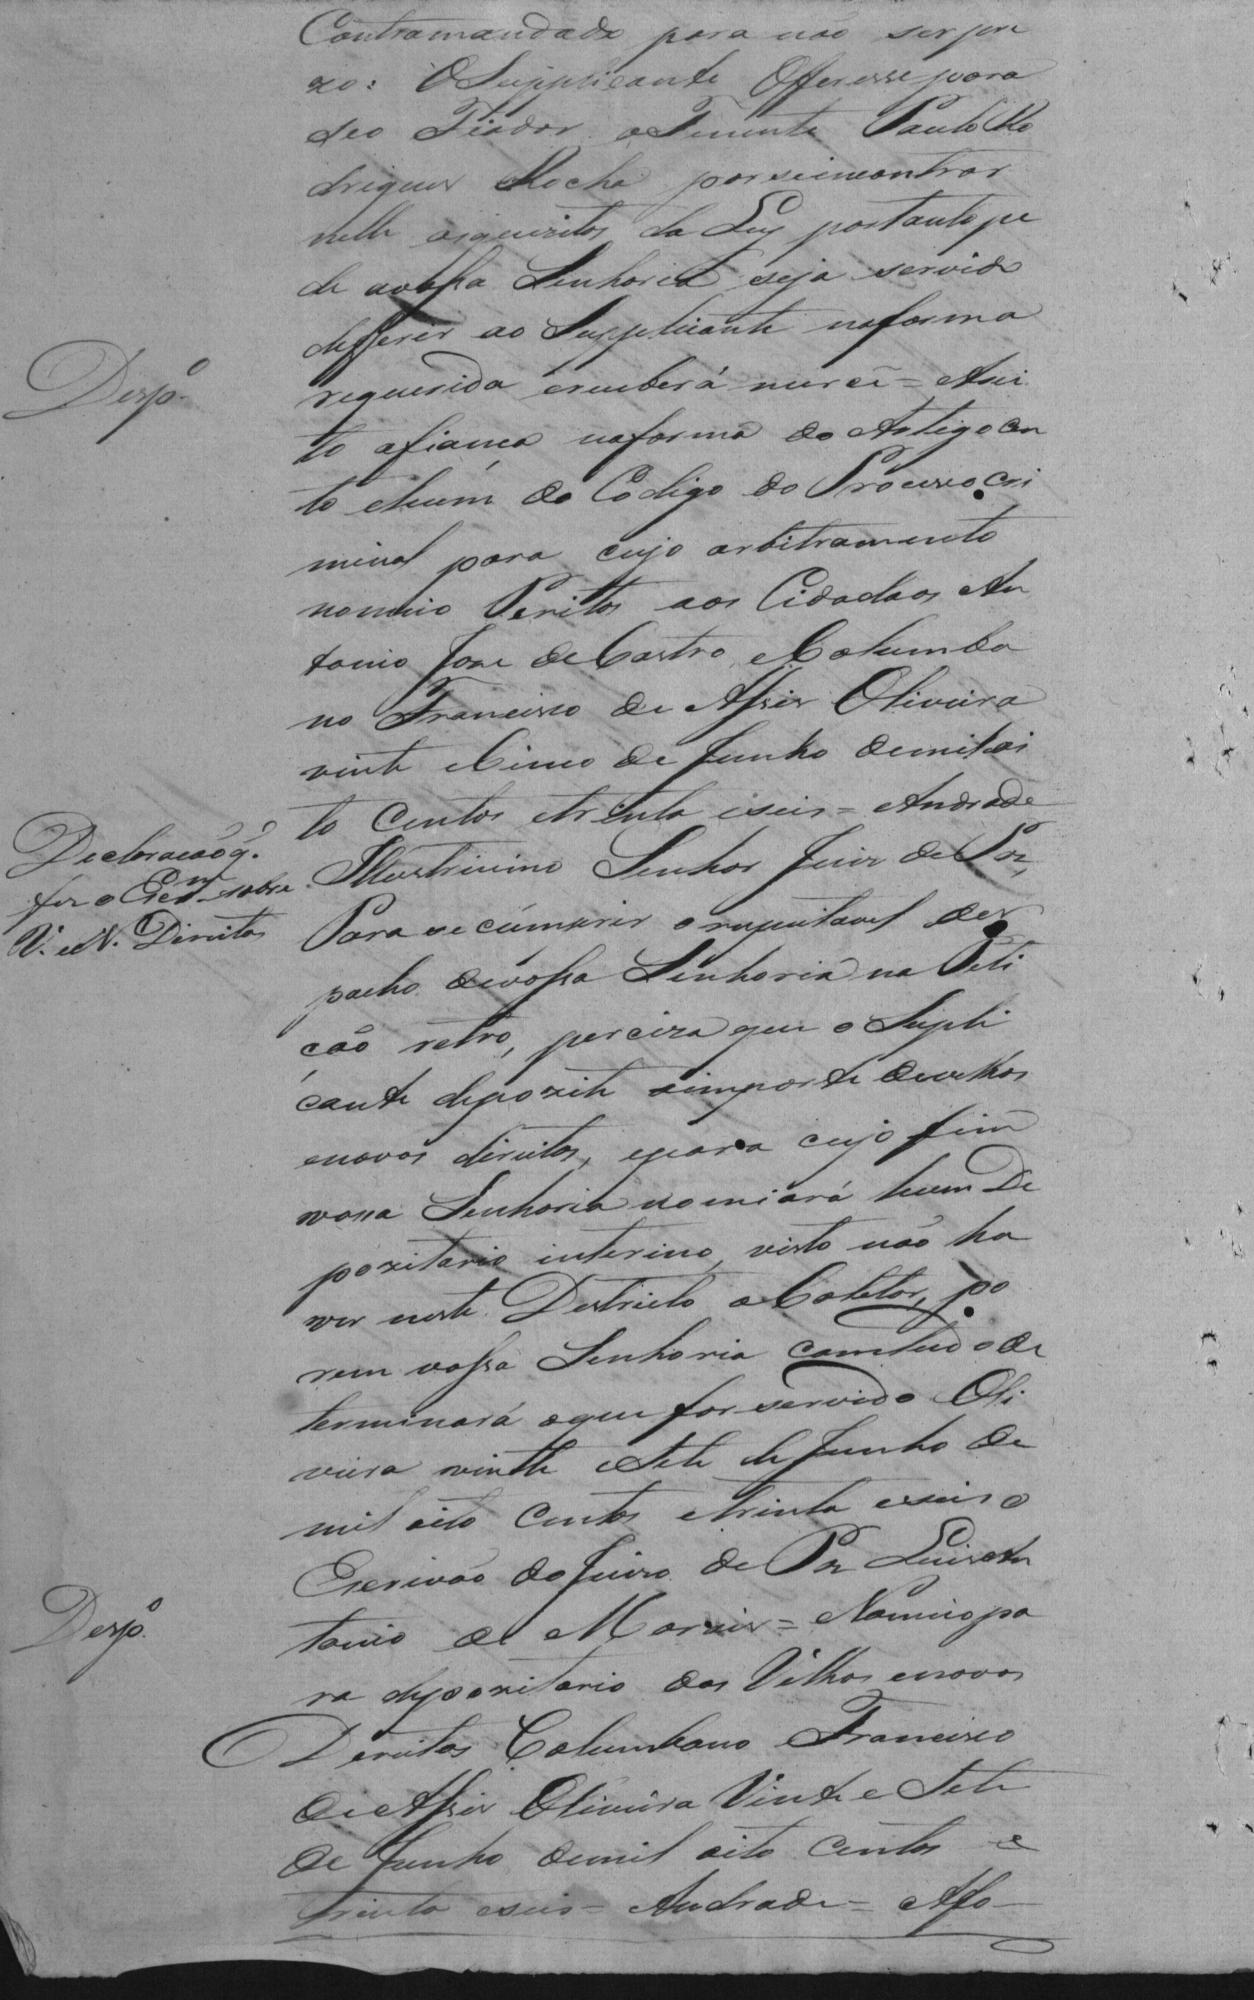 Contramandado para não ser pre
zo: O Supplicante Offeresse para
seo Fiador o Tenente Paulo Ro
drigues Rocha por se incontrar
nelle asquizitos da Ley portanto pe
de avossa Senhoria seja servido
defferir ao Supplicante naforma
requerida ereceberá mercê = Acei
Desp.o
to afiança naforma do Artigo cen
to ehum do Codigo do Procisso cri
minal para cujo arbitramento
nomeio Peritos aos Cidadaos An
tonio Joze de Castro, eColumba
no Francisco de Assis Oliveira
vinte eCinco de Junho demil oi
to Centos etrinta iseis = Andrade
Declaracão q.
fez o Escm sobre
V. eN. Direitos
Illustricimo Senhor Juiz de Paz,
Para se cumprir o respeitavel des
pacho devossa Senhoria na Peti
cão retro, perciza que o Supli
cante deposite aimporte develhos
enovos direitos, epara cujo fim
vossa Senhoria nomiará hum De
pozitario interino, visto não ha
ver neste Destricto o Coletor, po
rem vossa Senhoria comtudo de
terminará oque for servido Oli
veira vinte eSete de Junho de
mil oito centos etrinta eseis o
Escrivão do Juizo de Paz Luis An
tonio de Morais = Nomeio pa
Desp.o
ra depozitario dos Velhos enovos
Dereitos Columbano Francisco
de Assis Oliveira Vinte e Sete
de Junho demil oito centos e
trinta eseis = Andrade = Affo